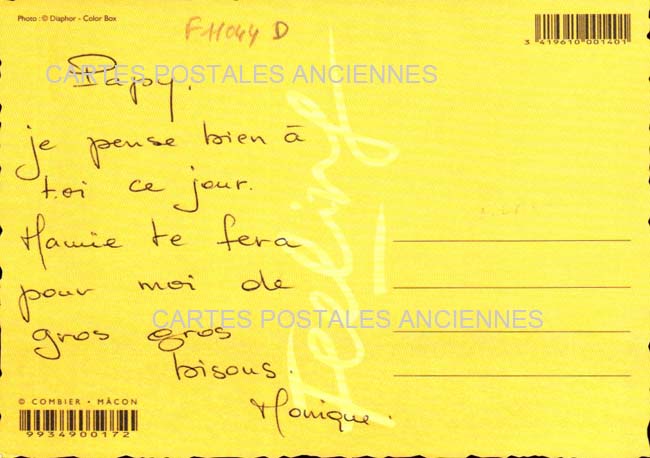 Photo : © Diaphor - Color Box
F11044 D
3 419610 001401
CARTES POSTALES ANCIENNES
Papy.
je pense bien à
toi ce jour.
Mamie te fera
pour moi de
gros gros
bisous.
Monique.
CARTES POSTALES ANCIENNES
Feeling
© COMBIER • MÂCON
9934900172